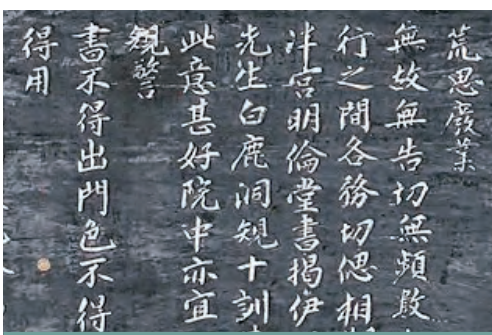 荒思廢業
無故無告切無頻數
行之間各務切偲相
泮宮明倫堂書揭伊
先生白鹿洞規十訓
此意甚好院中亦宜
規警
書不得出門色不得
得用